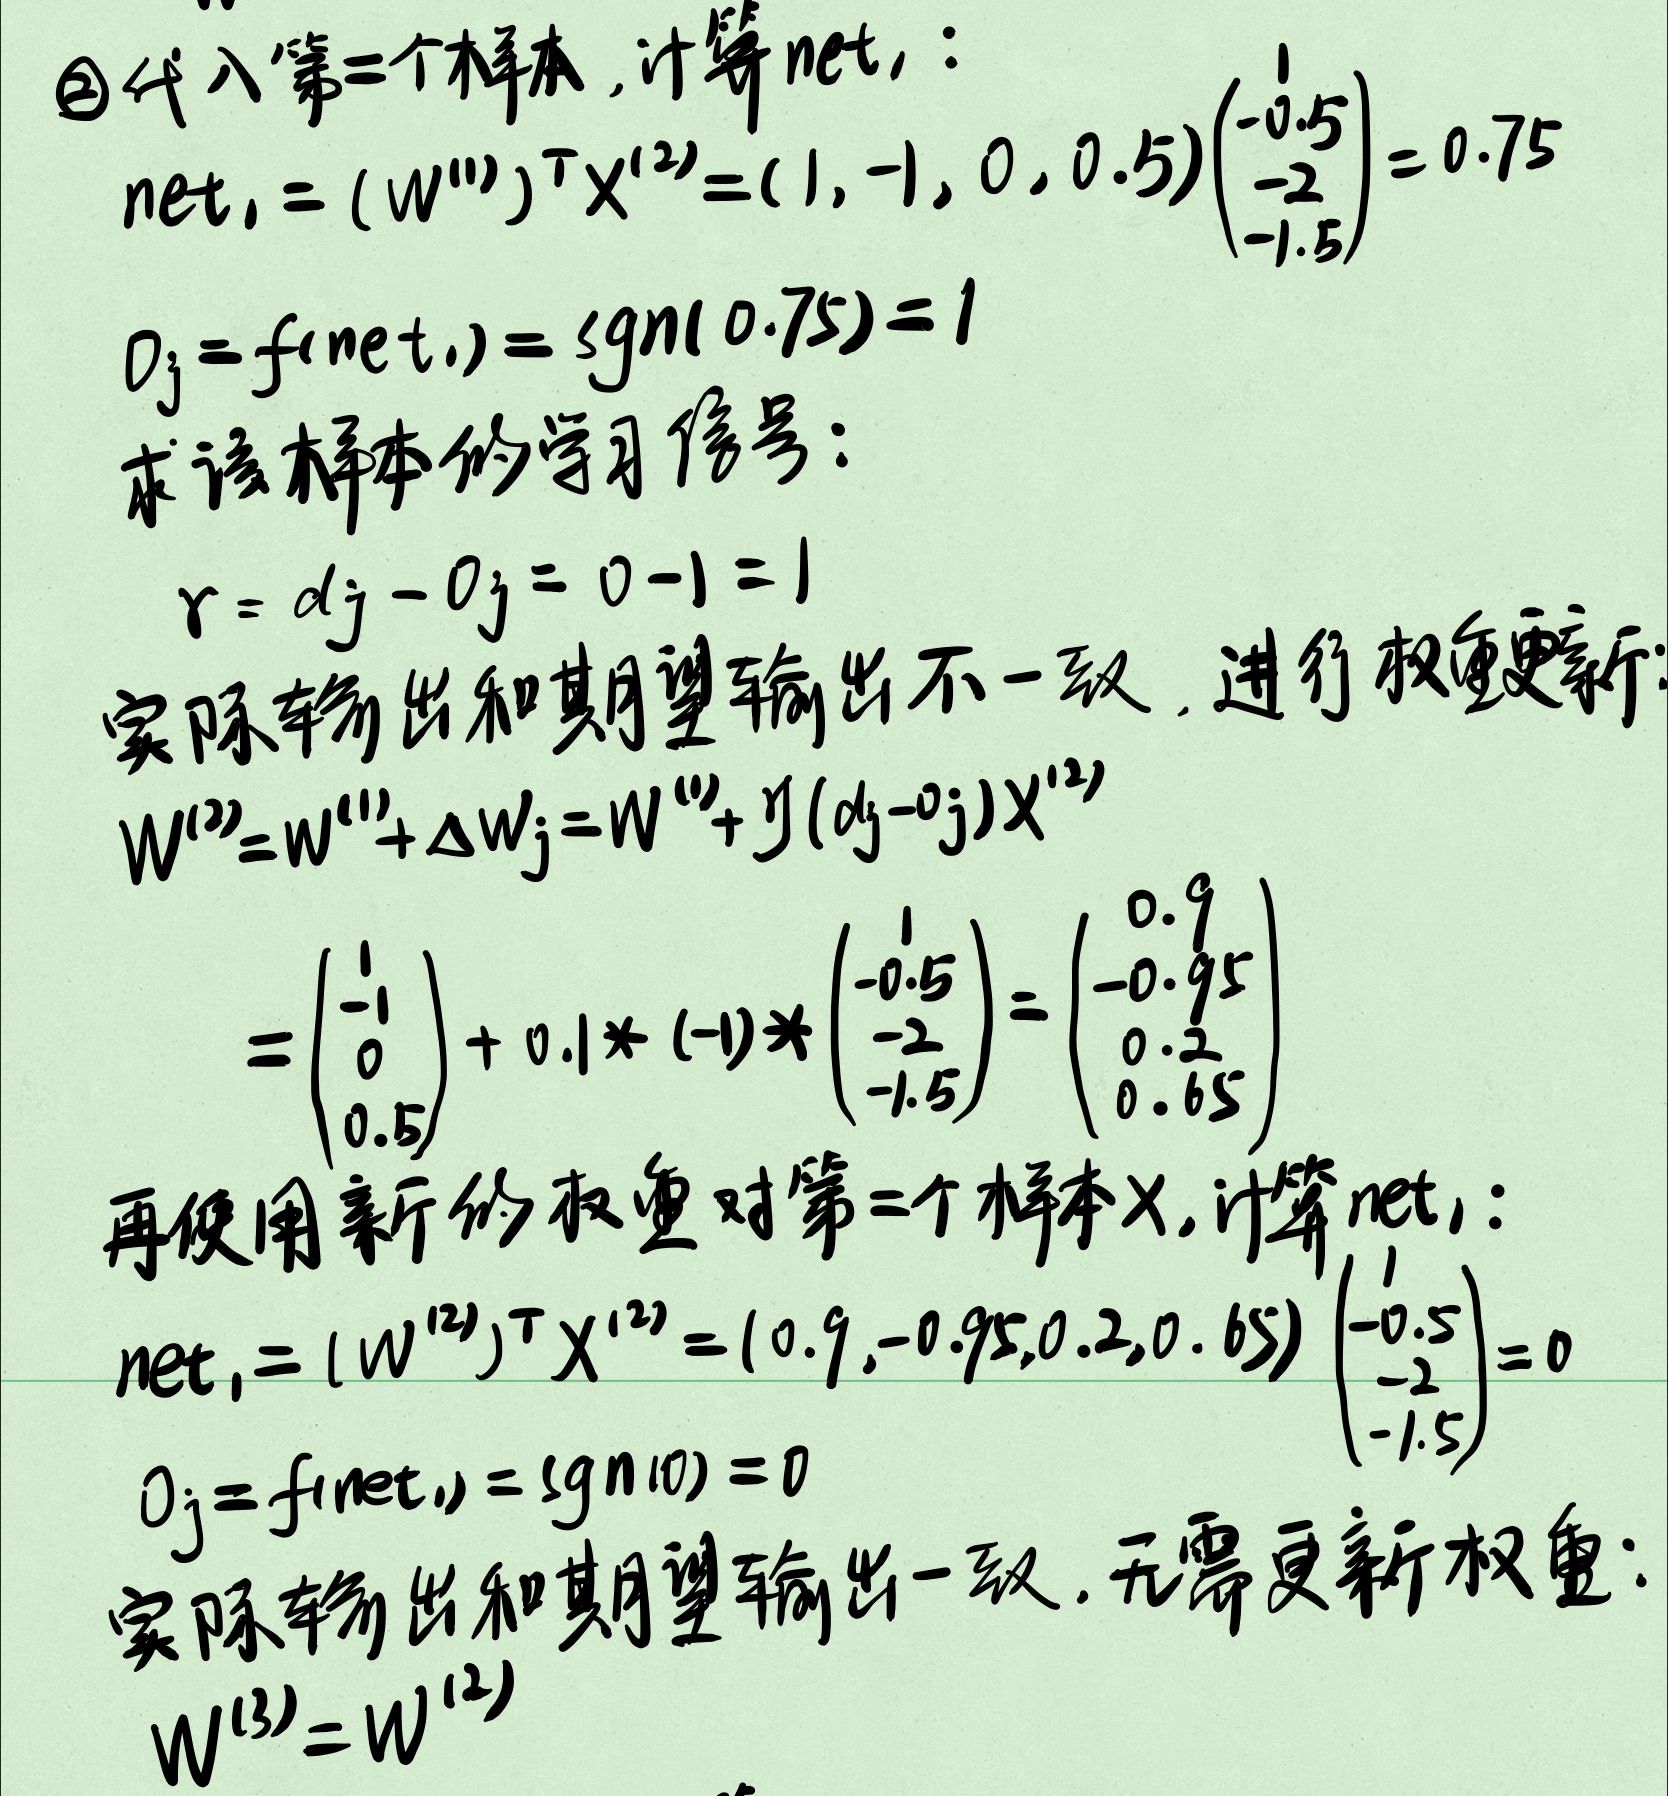 ②代入第二个样本,计算net₁:
net₁=(W⁽¹⁾)ᵀX⁽²⁾=(1,-1,0,0.5)(1 -0.5 -2 -1.5)=0.75
Oj=f(net₁)=sgn(0.75)=1
求该样本的学习信号:
r=dj-Oj=0-1=1
实际输出和期望输出不一致.进行权重更新:
W⁽²⁾=W⁽¹⁾+ΔWj=W⁽¹⁾+η(dj-Oj)X⁽²⁾
=(1 -1 0 0.5)+0.1*(-1)*(1 -0.5 -2 -1.5)=(0.9 -0.95 0.2 0.65)
再使用新的权重对第二个样本X,计算net₁:
net₁=(W⁽²⁾)ᵀX⁽²⁾=(0.9,-0.95,0.2,0.65)(1 -0.5 -2 -1.5)=0
Oj=f(net₁)=sgn(0)=0
实际输出和期望输出一致.无需更新权重:
W⁽³⁾=W⁽²⁾